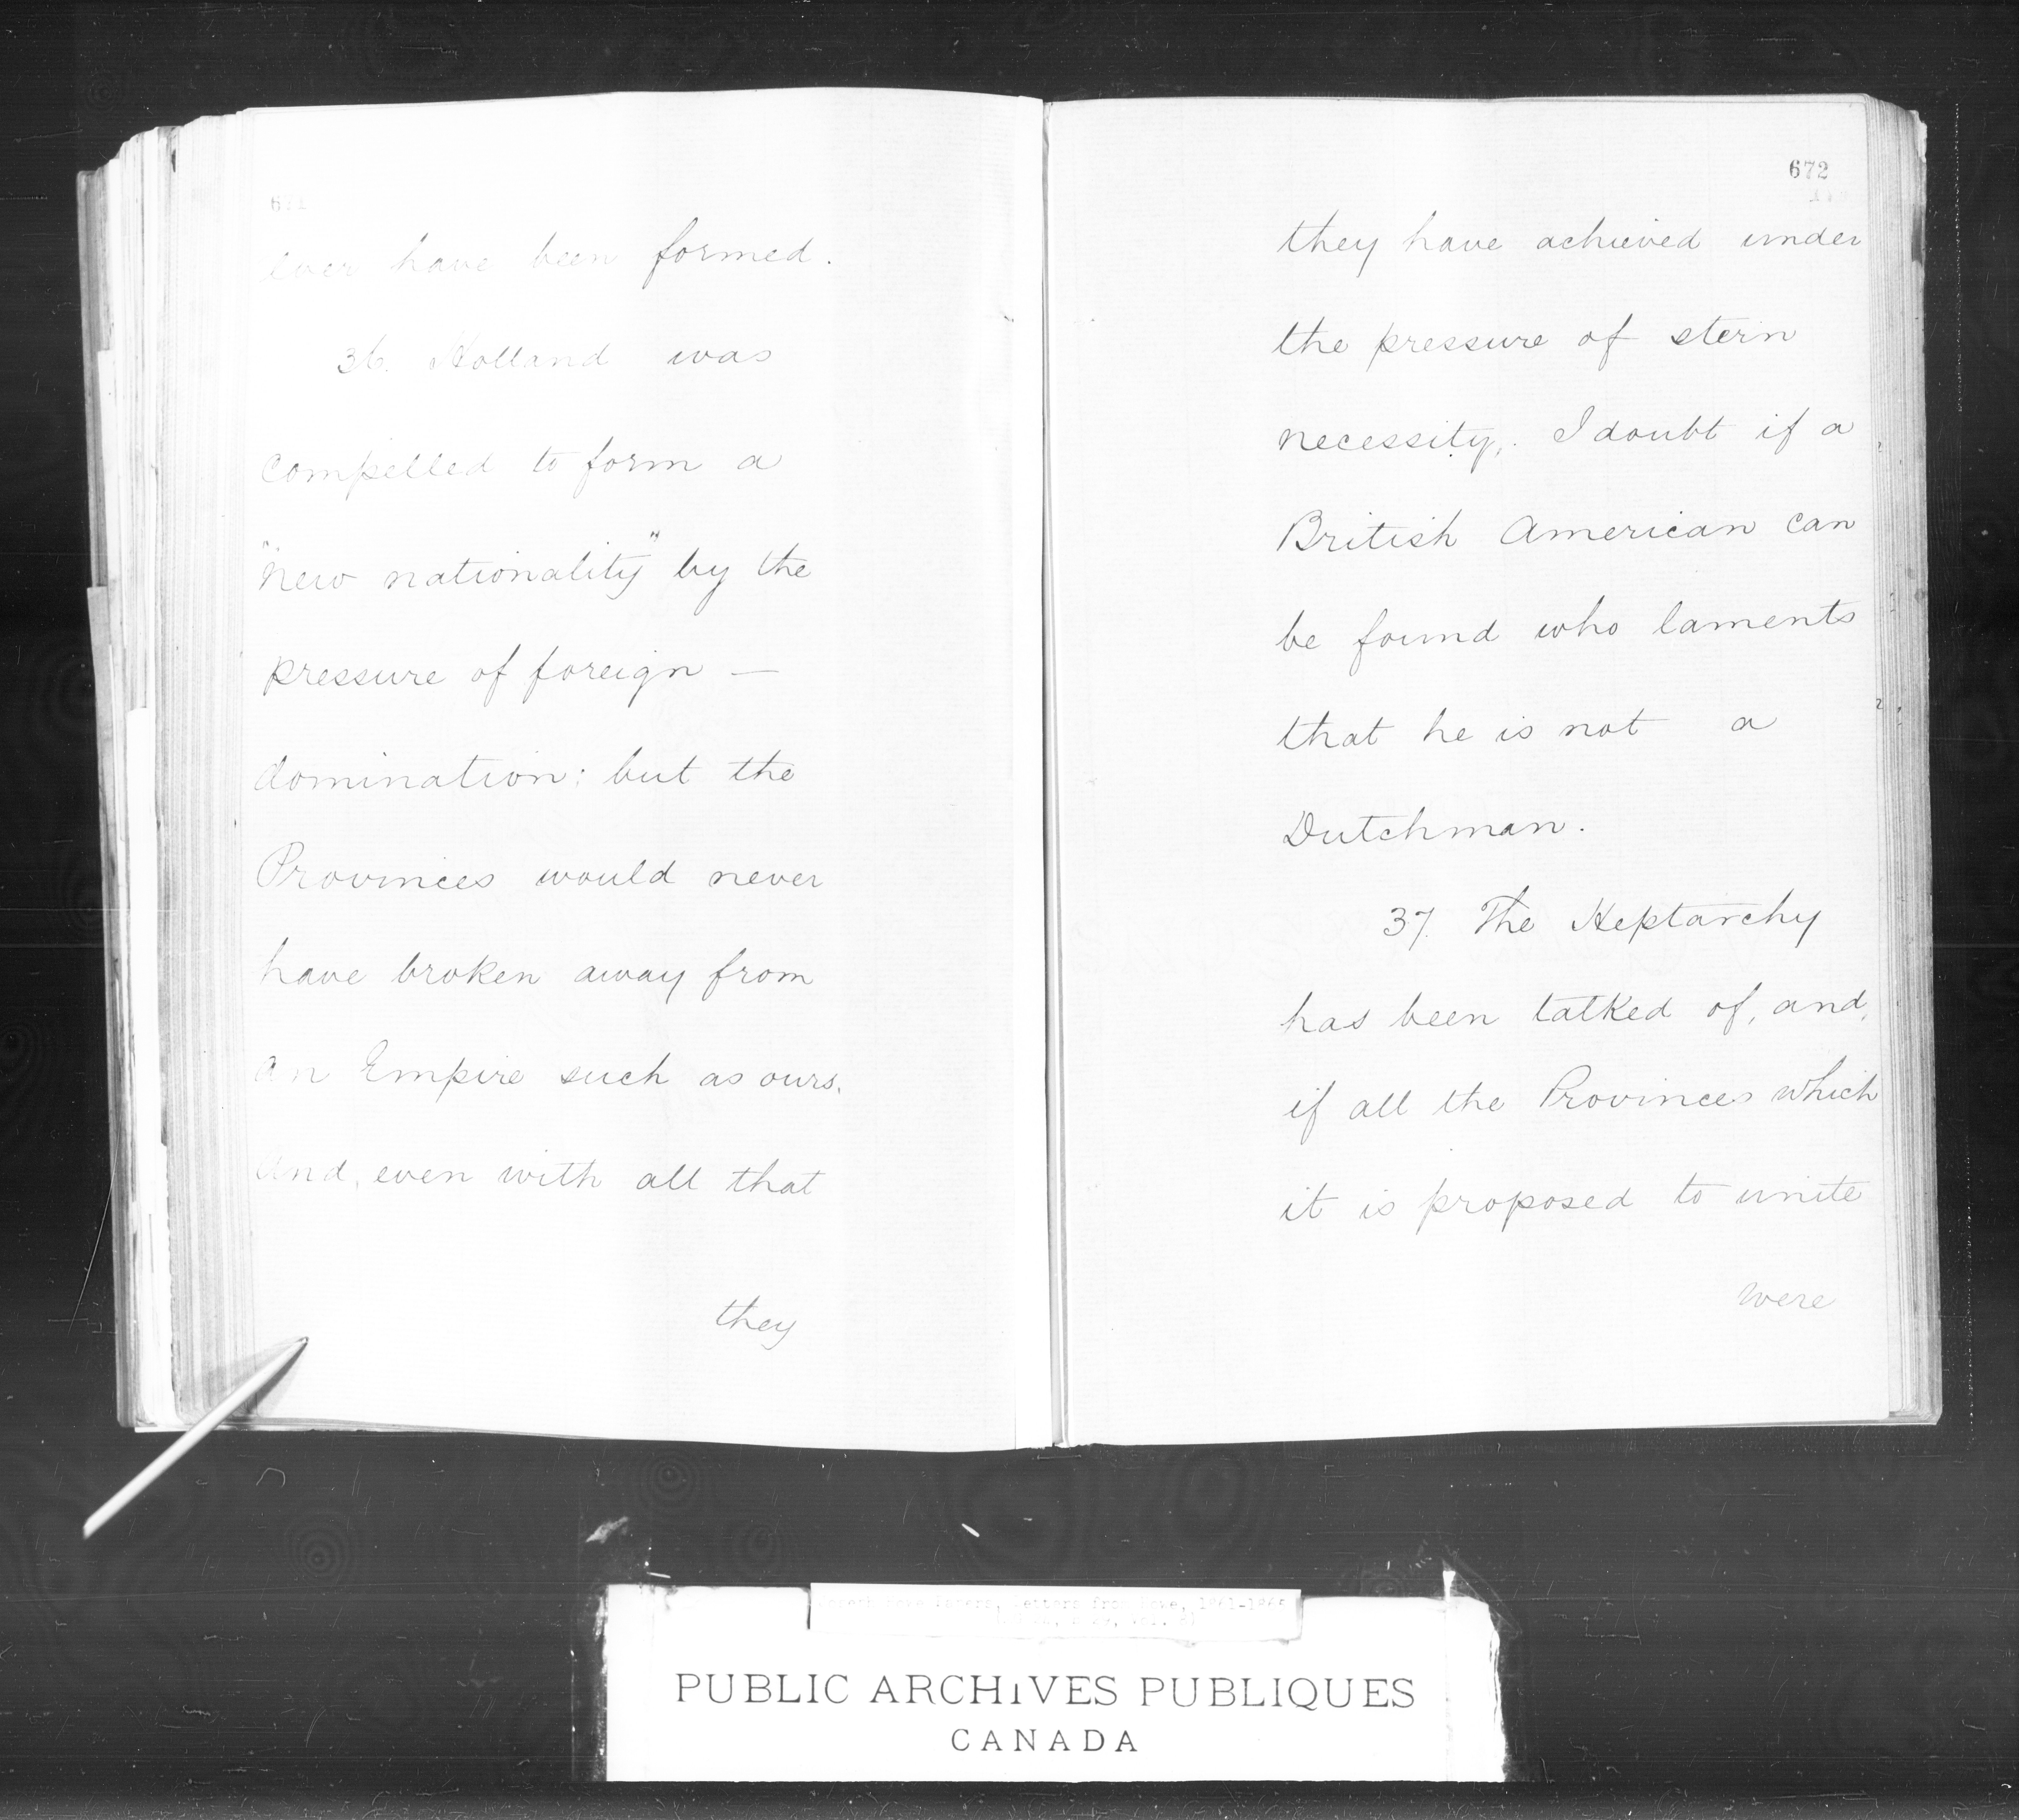 671
ever have been formed.
36. Holland was
compelled to form a
"new nationality" by the
pressure of foreign —
domination; but the
Provinces would never
have broken away from
an Empire such as ours.
And, even with all that
they
672
they have achieved under
the pressure of stern
necessity, I doubt if a
British American can
be found who laments
that he is not a
Dutchman.
37. The Heptarchy
has been talked of, and,
if all the Provinces which
it is proposed to unite
were
Joseph Howe Papers, Letters from Howe,
PUBLIC ARCHIVES PUBLIQUES
CANADA